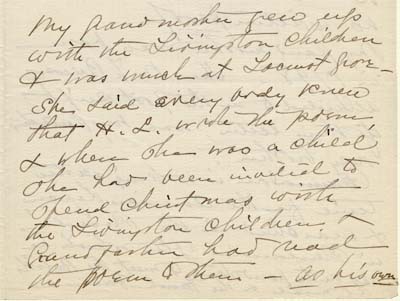 My grandmother grew up
with the Livingston children
& was much at Locust Grove -
She said every body knew
that H. L. wrote the poem,
& when she was a child
she had been invited to
spend Christmas with
the Livingston children, &
Grandfather had read
the poem to them - as his own